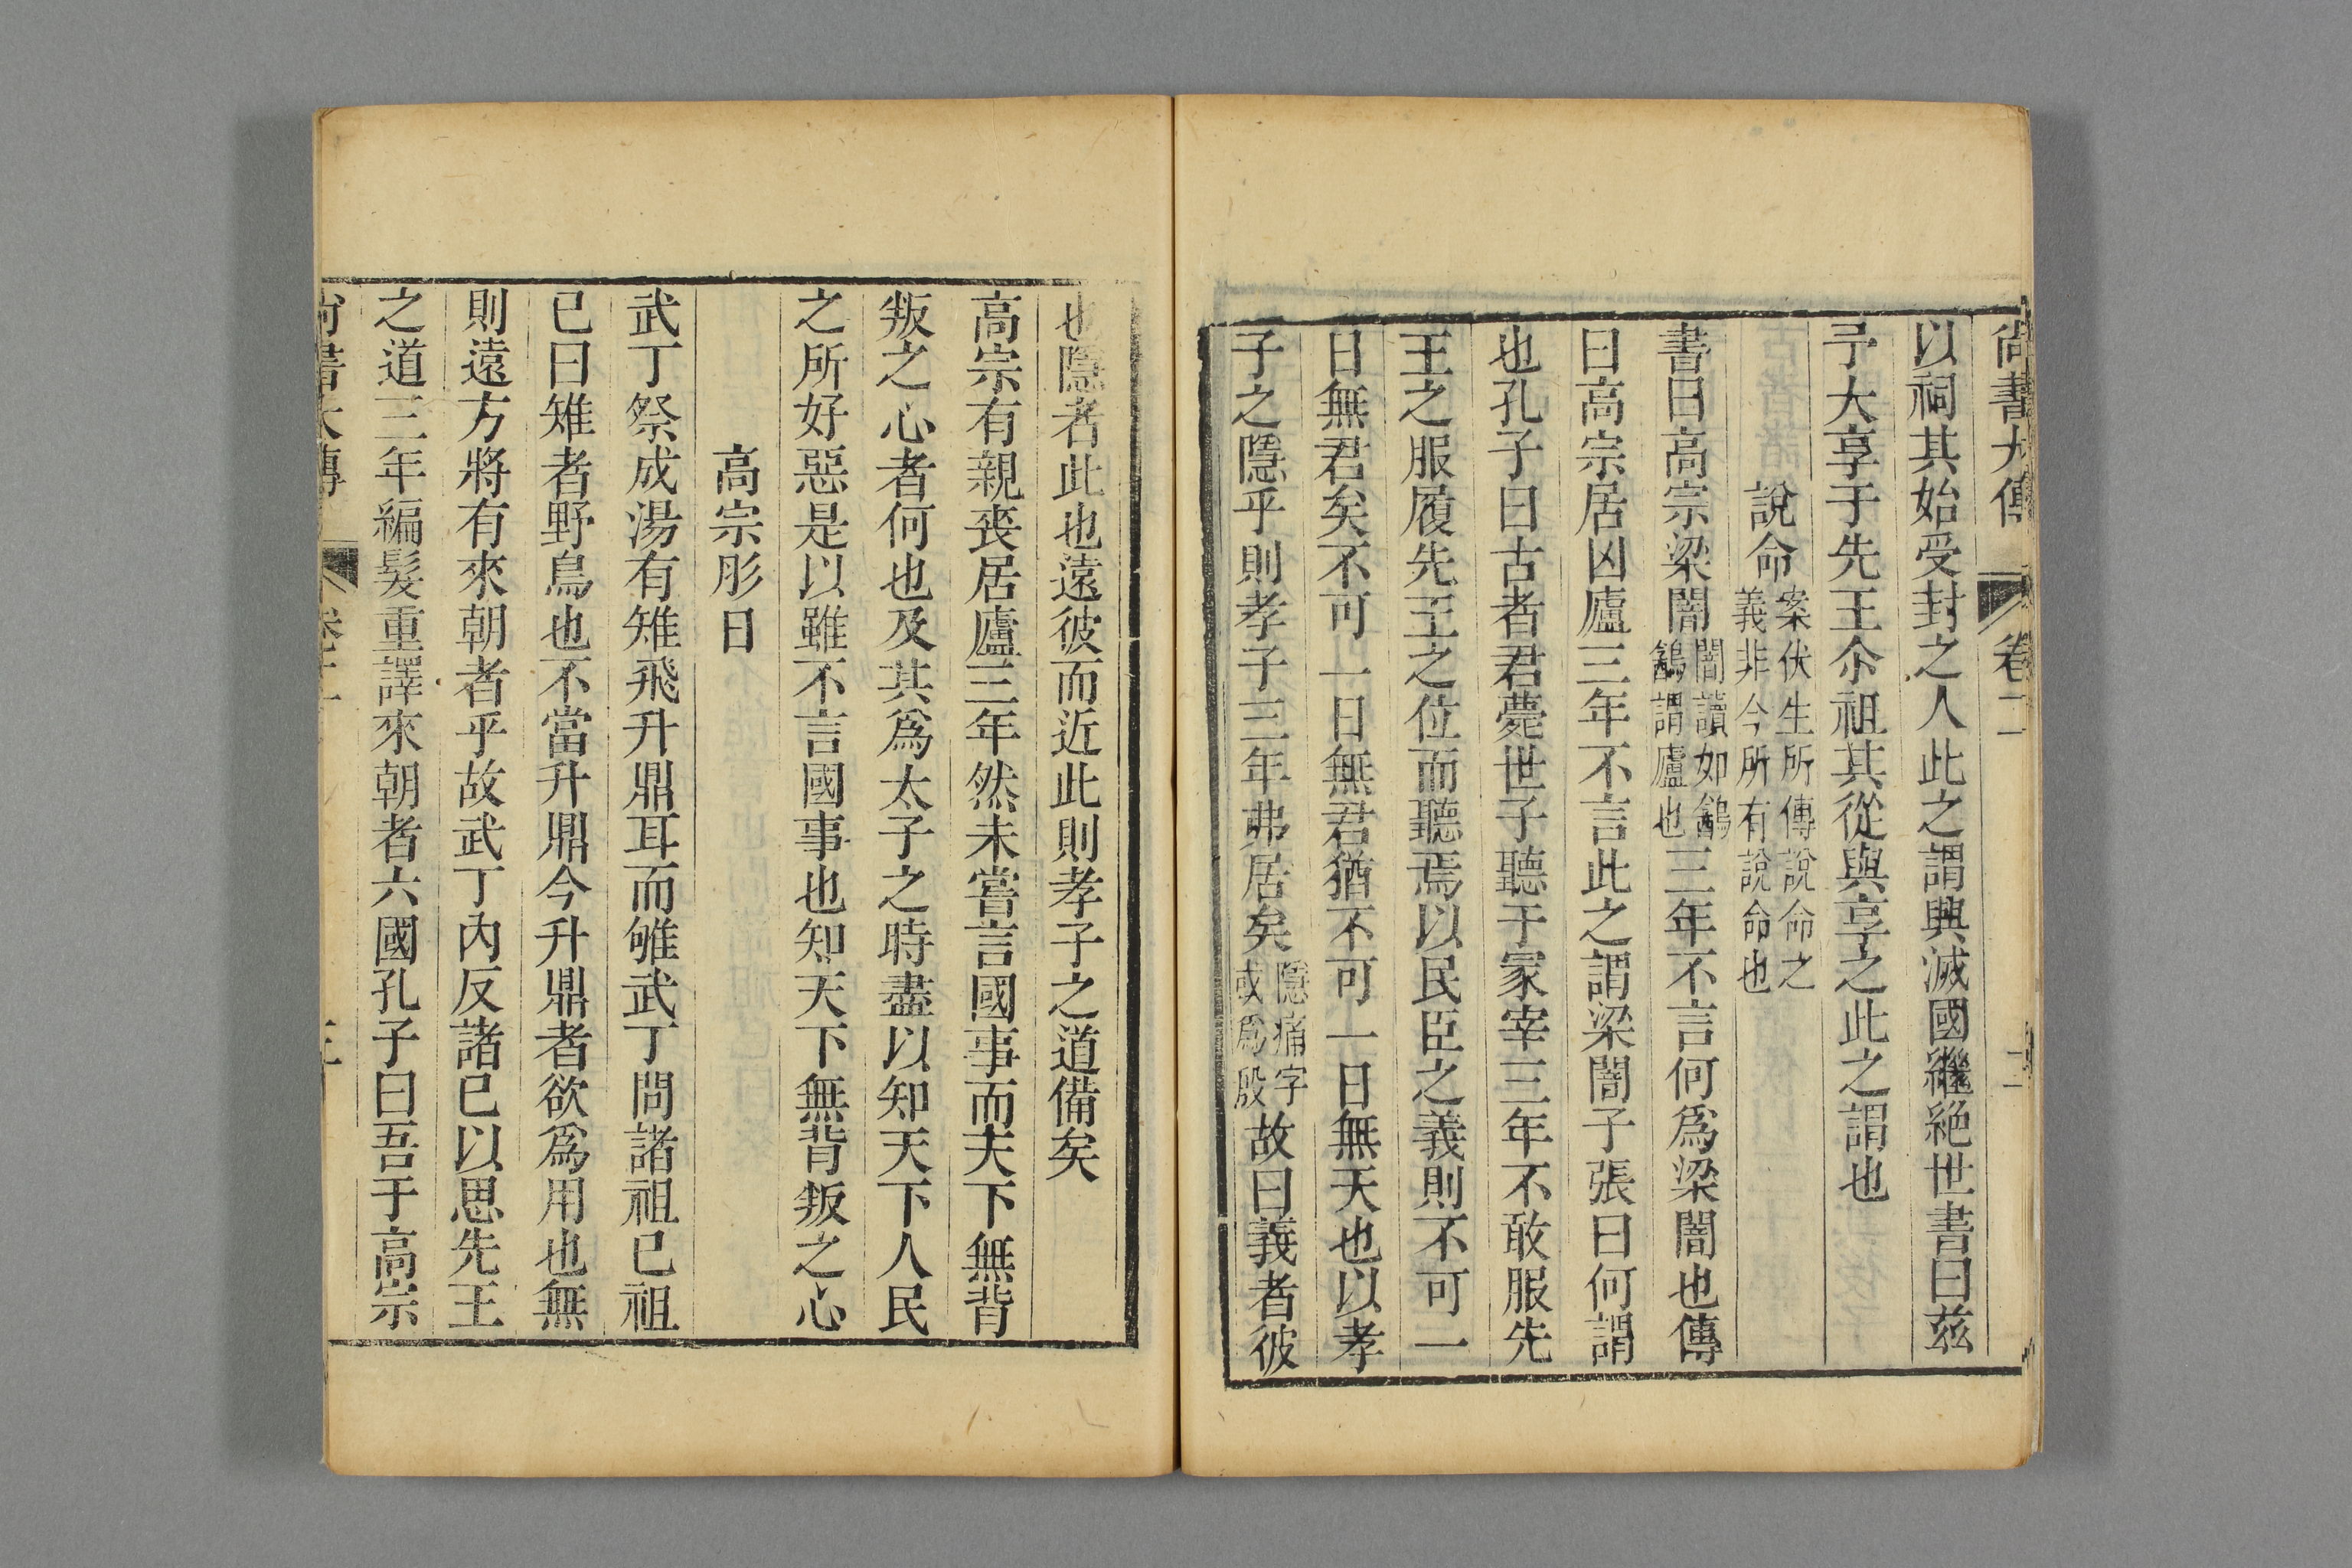 尚書大傳 卷二 二
以祠其始受封之人此之謂興滅國繼絕世書曰茲
予大享于先王尒祖其從與享之此之謂也
說命案伏生所傳說命之義非今所有說命也
書曰高宗梁闇闇讀如鶕鶕謂廬也三年不言何為梁闇也傳
曰高宗居凶廬三年不言此之謂梁闇子張曰何謂
也孔子曰古者君薨世子聽于冢宰三年不敢服先
王之服履先王之位而聽焉以民臣之義則不可一
日無君矣不可一日無君猶不可一日無天也以孝
子之隱乎則孝子三年弗居矣隱痛字或為殷故曰義者彼
也隱者此也遠彼而近此則孝子之道備矣
高宗有親喪居廬三年然未嘗言國事而天下無背
叛之心者何也及其為太子之時盡以知天下人民
之所好惡是以雖不言國事也知天下無背叛之心
高宗肜日
武丁祭成湯有雉飛升鼎耳而雊武丁問諸祖已祖
已曰雉者野鳥也不當升鼎今升鼎者欲為用也無
則遠方將有來朝者乎故武丁內反諸已以思先王
之道三年編髮重譯來朝者六國孔子曰吾于高宗
尚書大傳 卷二 三